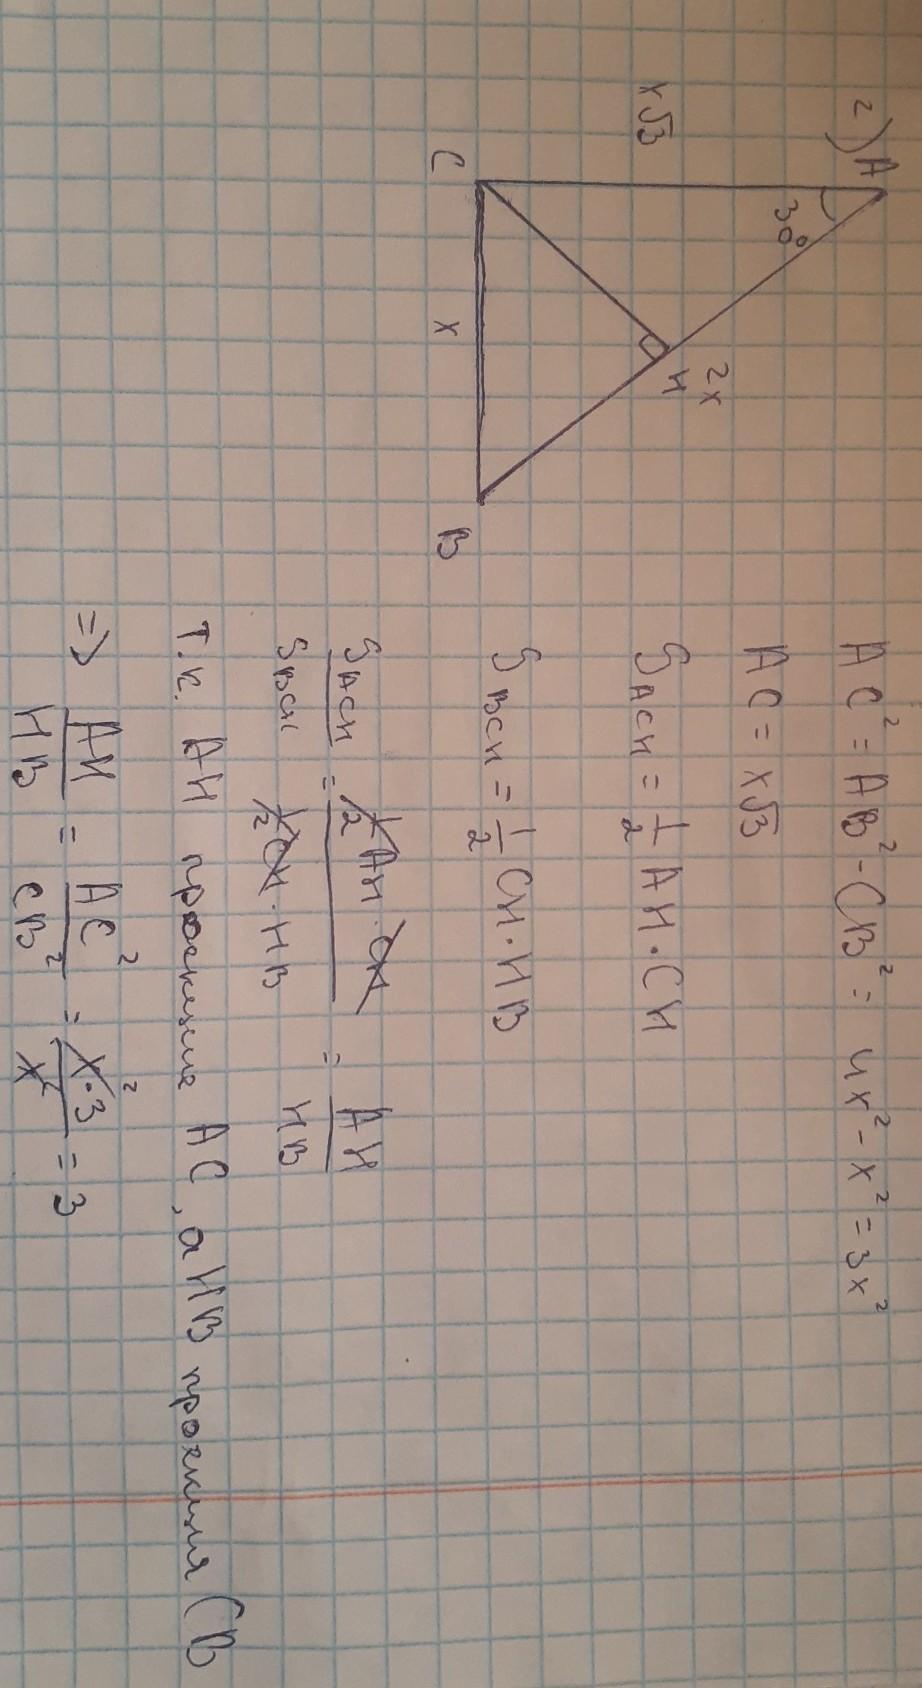 2)
A
30°
x√3
H
2x
C
x
B
AC² = AB² - CB² = 4x² - x² = 3x²
AC = x√3
S_ACH = 1/2 AH · CH
S_BCH = 1/2 CH · HB
S_ACH / S_BCH = (1/2 AH · CH) / (1/2 CH · HB) = AH / HB
т.к. AH проекция AC, а HB проекция CB
=> AH / HB = AC² / CB² = x² · 3 / x² = 3